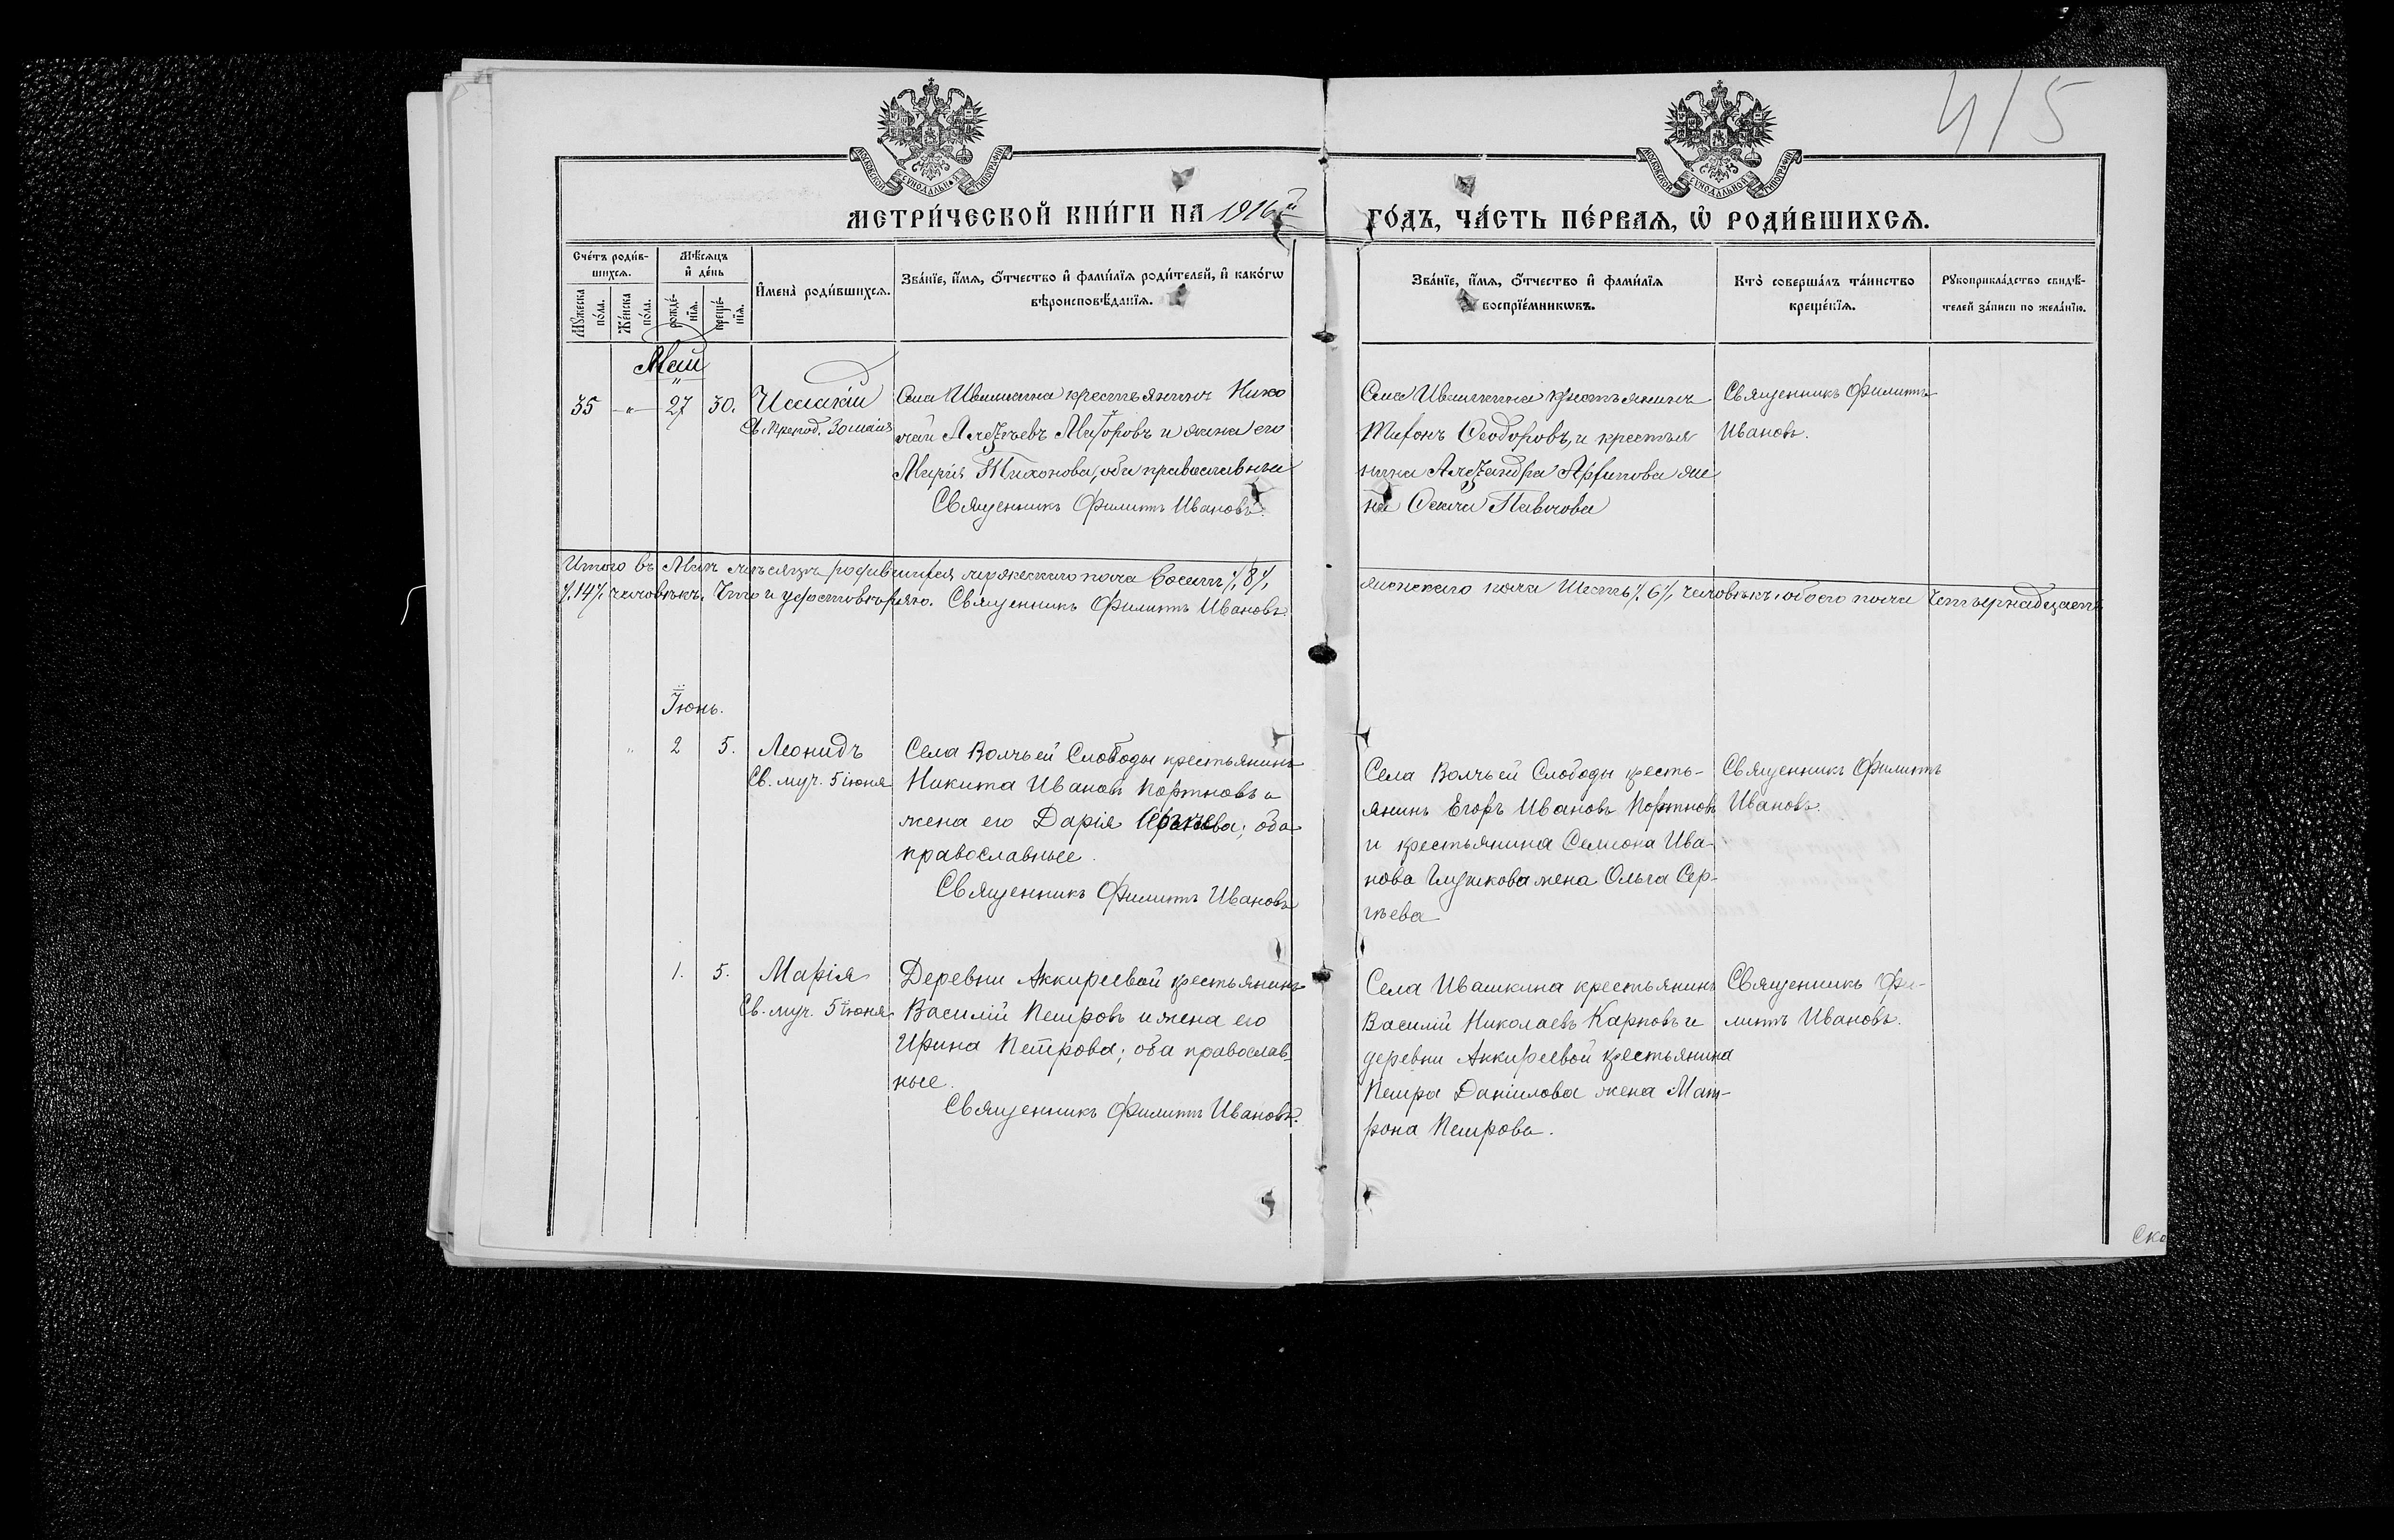 415
МОСКОВСКОЙ СѴНОДАЛЬНОЙ ТИПОГРАФІИ
МОСКОВСКОЙ СѴНОДАЛЬНОЙ ТИПОГРАФІИ
МЕТРИ́ЧЕСКОЙ КНИ́ГИ НА 1916й ГО́ДЪ, ЧА́СТЬ ПЕ́РВАЯ, Ѡ РОДИ́ВШИХСЯ.
Сче́тъ роди́в-
шихся.
Мѣ́сяцъ
и҆ де́нь
Мꙋ́жеска
по́ла.
Же́нска
по́ла.
рожде́-
нїѧ.
креще́-
нїѧ.
И҆мена̀ роди́вшихся.
Зва́нїе, и҆́мѧ, ѻ҆́тчество и҆ фами́лїѧ роди́телей, и҆ како́гѡ
вѣроисповѣ́данїѧ.
Зва́нїе, и҆́мѧ, ѻ҆́тчество и҆ фами́лїѧ
воспрїе́мникѡвъ.
Кто̀ соверша́лъ та́инство
креще́нїѧ.
Рꙋкоприкла́дство свидѣ́-
телей за́писи по жела́нїю.
Май
35 — " — 27 30. Исаакій
Св. Препод. 30 мая
Села Ивашкина крестьянинъ Нико
лай Алексѣевъ Маіоровъ и жена его
Марія Тихонова, оба православные
Священникъ Филиппъ Ивановъ.
Села Ивашкина крестьянинъ
Ѳеодоровъ, и крестья
нина Александра Архипова же
на Павлова
Священникъ Филиппъ
Ивановъ.
Итого въ Маѣ мѣсяцѣ родившихся мужескаго пола восемь /8/, женскаго пола Шесть /6/, человѣкъ, обоего пола Четырнадцать
/14/ человѣкъ. Что и удостовѣряю. Священникъ Филиппъ Ивановъ.
Іюнь.
" 2 5. Леонидъ
Св. муч. 5 іюня
Села Волчьей Слободы крестьянинъ
Никита Ивановъ Портновъ и
жена его Дарія оба
православные.
Священникъ Филиппъ Ивановъ
Села Волчьей Слободы кресть-
янинъ Егоръ Ивановъ Портновъ
и крестьянина Семиона Ива-
нова Глушкова жена Ольга Сер-
гѣева
Священникъ Филиппъ
Ивановъ.
1. 5. Марія
Св. муч. 5 іюня
Деревни Аккиреевой крестьянинъ
Василій Петровъ и жена его
Ирина Петрова; оба православ-
ные.
Священникъ Филиппъ Ивановъ.
Села Ивашкина крестьянинъ
Василій Николаевъ Карповъ и
деревни Аккиреевой крестьянина
Петра Даніилова жена Мат-
рона Петрова.
Священникъ Фи-
липпъ Ивановъ.
Ско